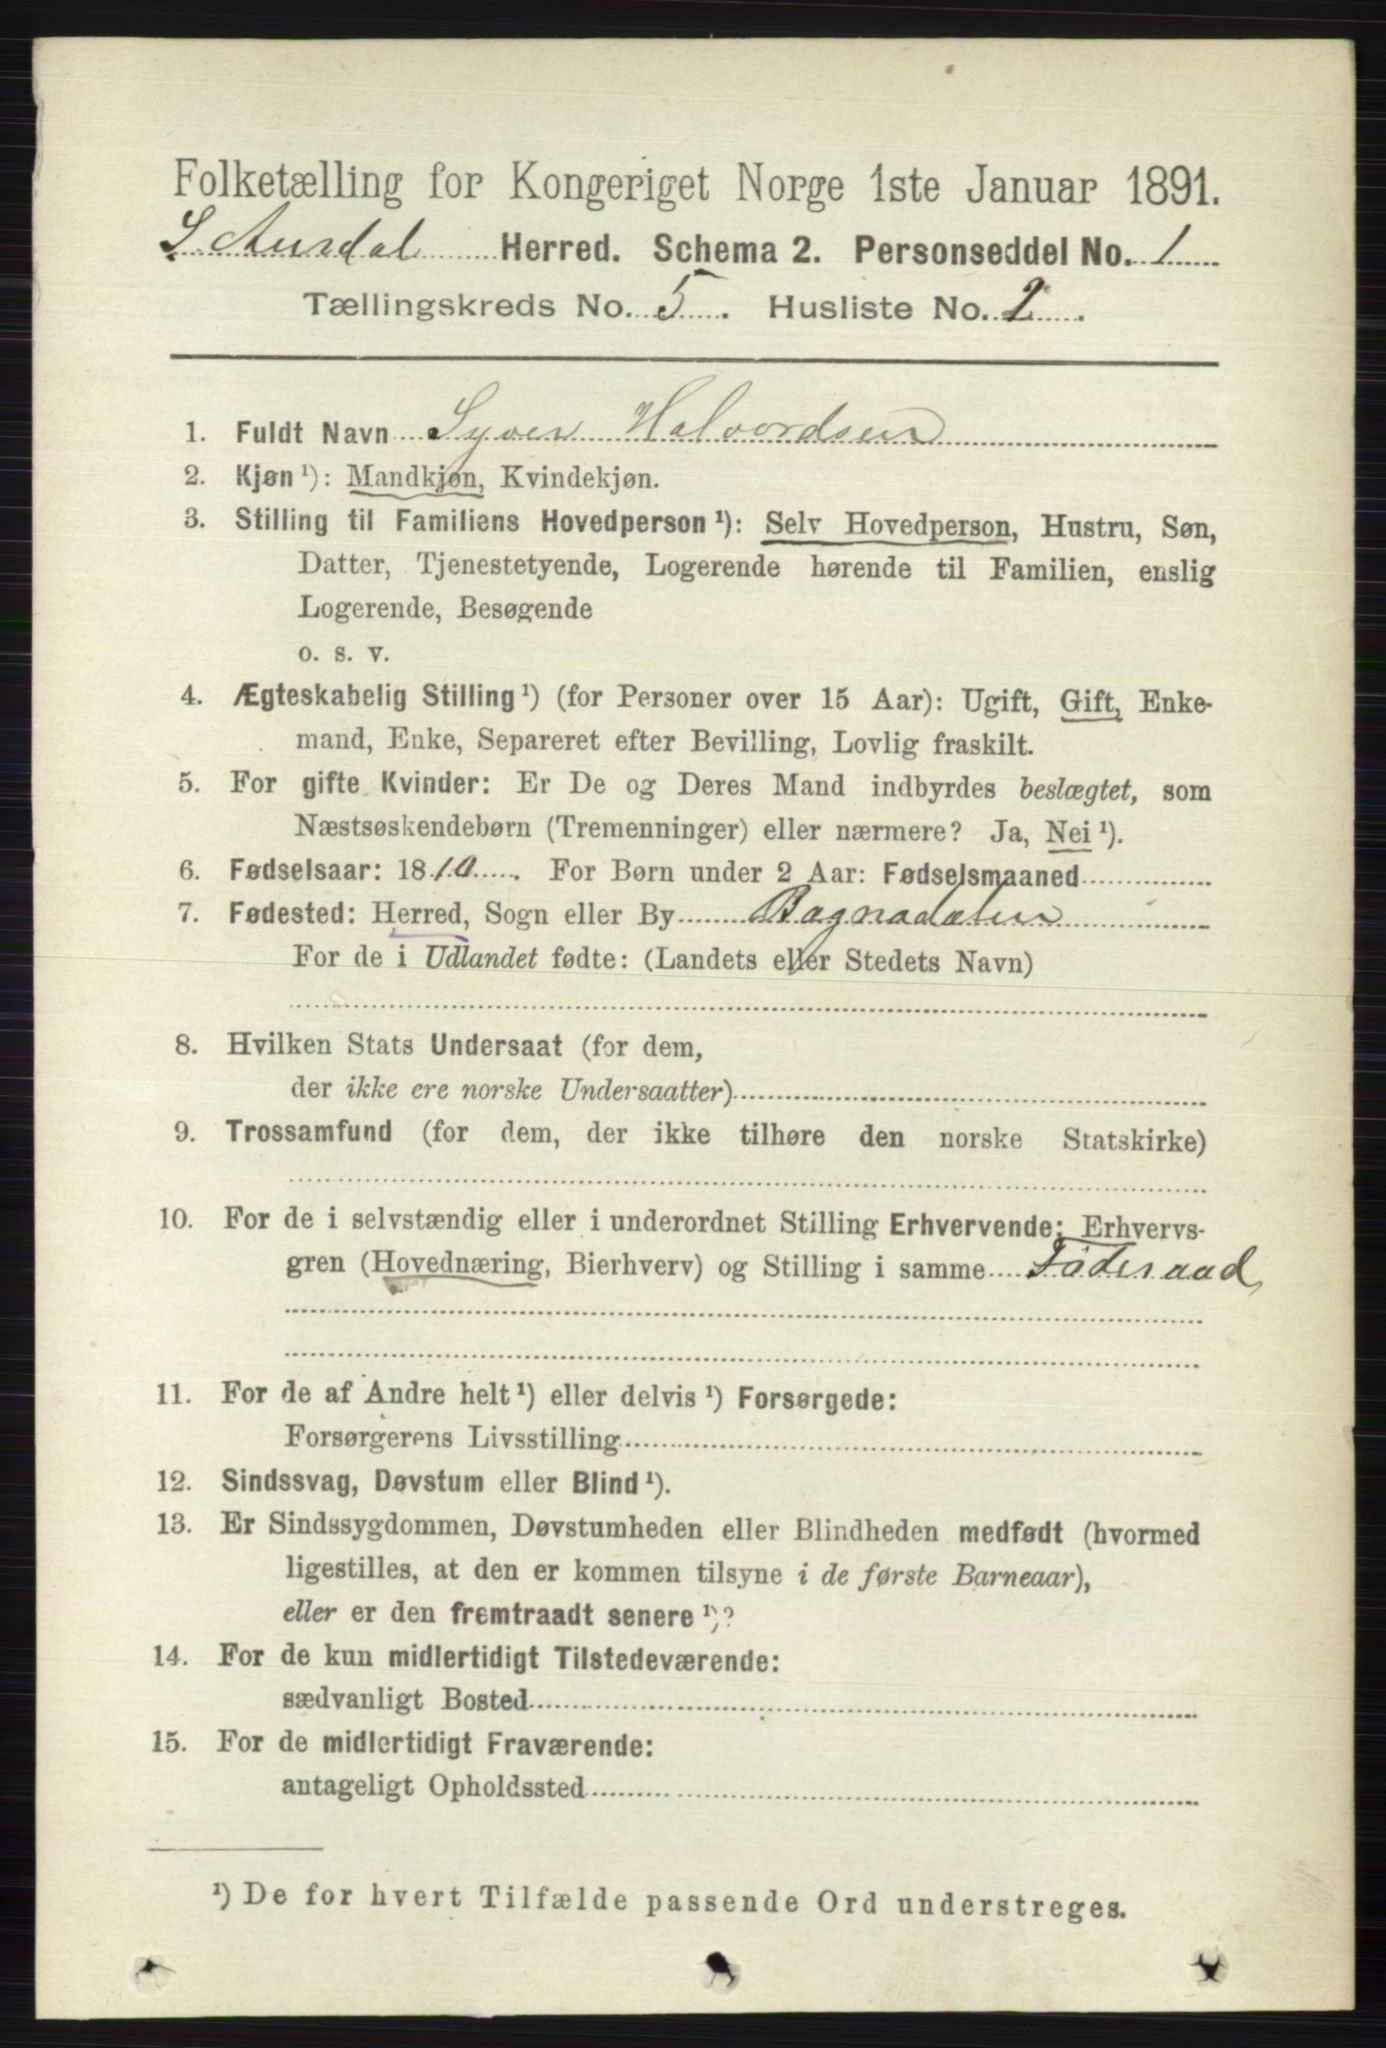 Folketælling for Kongeriget Norge 1ste Januar 1891.
S. Aurdal Herred. Schema 2. Personseddel No. 1
Tællingskreds No. 5. Husliste No. 2.
1. Fuldt Navn Syver Halvordsen
2. Kjøn ¹): Mandkjøn, Kvindekjøn.
3. Stilling til Familiens Hovedperson ¹): Selv Hovedperson, Hustru, Søn,
Datter, Tjenestetyende, Logerende hørende til Familien, enslig
Logerende, Besøgende
o. s. v.
4. Ægteskabelig Stilling ¹) (for Personer over 15 Aar): Ugift, Gift, Enke-
mand, Enke, Separeret efter Bevilling, Lovlig fraskilt.
5. For gifte Kvinder: Er De og Deres Mand indbyrdes beslægtet, som
Næstsøskendebørn (Tremenninger) eller nærmere? Ja, Nei ¹).
6. Fødselsaar: 1810. For Børn under 2 Aar: Fødselsmaaned
7. Fødested: Herred, Sogn eller By
For de i Udlandet fødte: (Landets eller Stedets Navn)
8. Hvilken Stats Undersaat (for dem,
der ikke ere norske Undersaatter)
9. Trossamfund (for dem, der ikke tilhøre den norske Statskirke)
10. For de i selvstændig eller i underordnet Stilling Erhvervende: Erhvervs-
gren (Hovednæring, Bierhverv) og Stilling i samme Föderaad
11. For de af Andre helt ¹) eller delvis ¹) Forsørgede:
Forsørgerens Livsstilling
12. Sindssvag, Døvstum eller Blind ¹).
13. Er Sindssygdommen, Døvstumheden eller Blindheden medfødt (hvormed
ligestilles, at den er kommen tilsyne i de første Barneaar),
eller er den fremtraadt senere ¹)?
14. For de kun midlertidigt Tilstedeværende:
sædvanligt Bosted
15. For de midlertidigt Fraværende:
antageligt Opholdssted
¹) De for hvert Tilfælde passende Ord understreges.